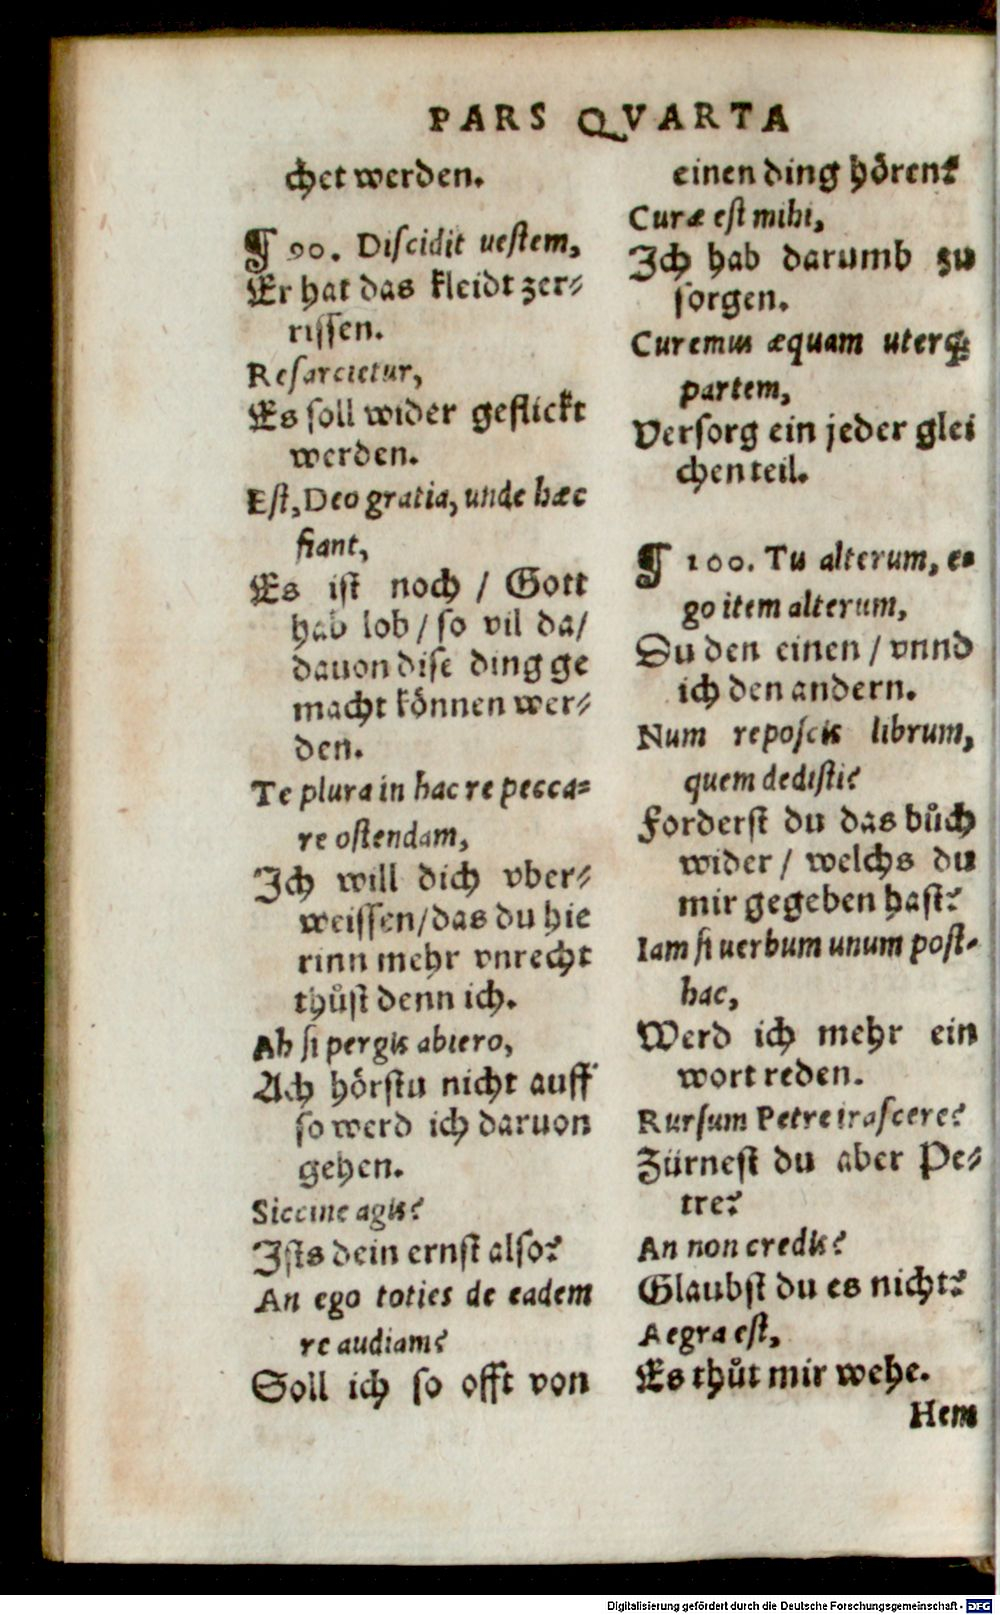 PARS QVARTA
chet werden.
¶ 90. Discidit uestem,
Er hat das kleidt zer⸗
rissen.
Resarcietur,
Es soll wider geflickt
werden.
Est, Deo gratia, unde hæc
fiant,
Es ist noch / Gott
hab lob / so vil da /
dauon dise ding ge
macht können wer⸗
den.
Te plura in hac re pecca⸗
re ostendam,
Ich will dich vber⸗
weissen / das du hie
rinn mehr vnrecht
thůst denn ich.
Ah si pergis abiero,
Ach hörstu nicht auff
so werd ich daruon
gehen.
Siccine agis?
Ists dein ernst also?
An ego toties de eadem
re audiam?
Soll ich so offt von
einen ding hören?
Curæ est mihi,
Ich hab darumb zu
sorgen.
Curemus æquam uterq́;
partem,
Versorg ein jeder glei
chen teil.
¶ 100. Tu alterum, e⸗
go item alterum,
Du den einen / vnnd
ich den andern.
Num reposcis librum,
quem dedisti?
Forderst du das bůch
wider / welchs du
mir gegeben hast?
Iam si uerbum unum post⸗
hac,
Werd ich mehr ein
wort reden.
Rursum Petre irascere?
Zürnest du aber Pe⸗
tre?
An non credis?
Glaubst du es nicht?
Aegra est,
Es thůt mir wehe.
Hem
Digitalisierung gefördert durch die Deutsche Forschungsgemeinschaft - DFG